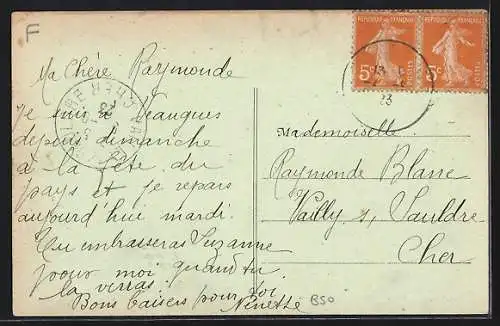 F
RÉPUBLIQUE FRANÇAISE RÉPUBLIQUE FRANÇAISE
5c 5c
POSTES POSTES
23
Ma Chère Raymonde
Je suis à Veaugues
depuis dimanche
à la fête du
pays et je repars
aujourd'hui mardi.
Tu embrasseras Suzanne
pour moi quand tu
la verras.
Bons baisers pour toi
Nénette
Mademoiselle
Raymonde Blanc
Vailly s/ Sauldre
Cher
BSO